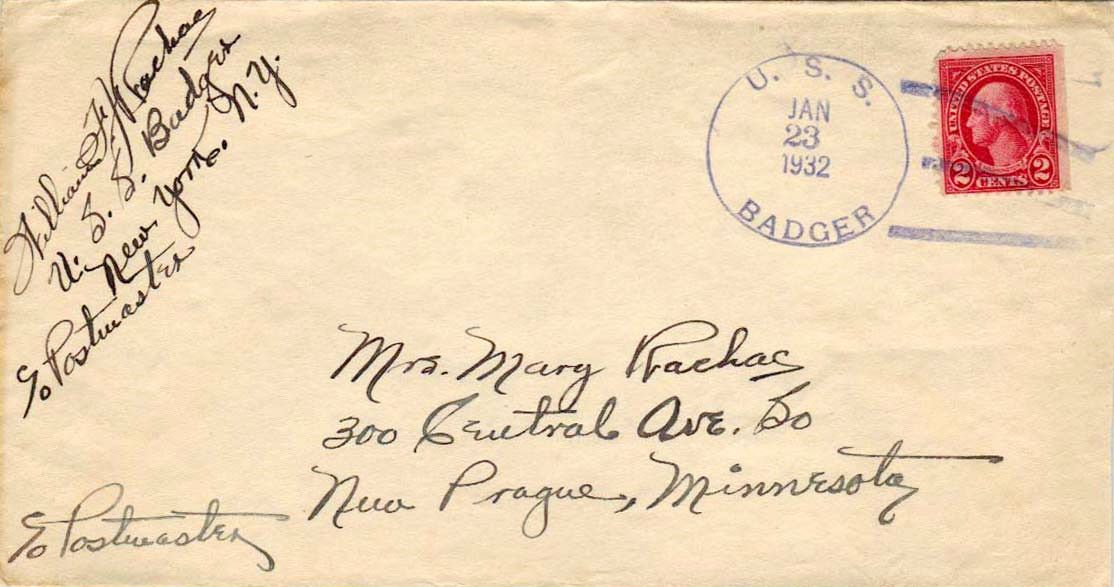 William F. Rachac
U. S. S. Badger
New York. N.Y.
c/o Postmaster
U. S. S.
JAN
23
1932
BADGER
UNITED STATES POSTAGE
2 CENTS 2
Mrs. Mary Rachac
300 Central Ave. So
New Prague, Minnesota
c/o Postmaster